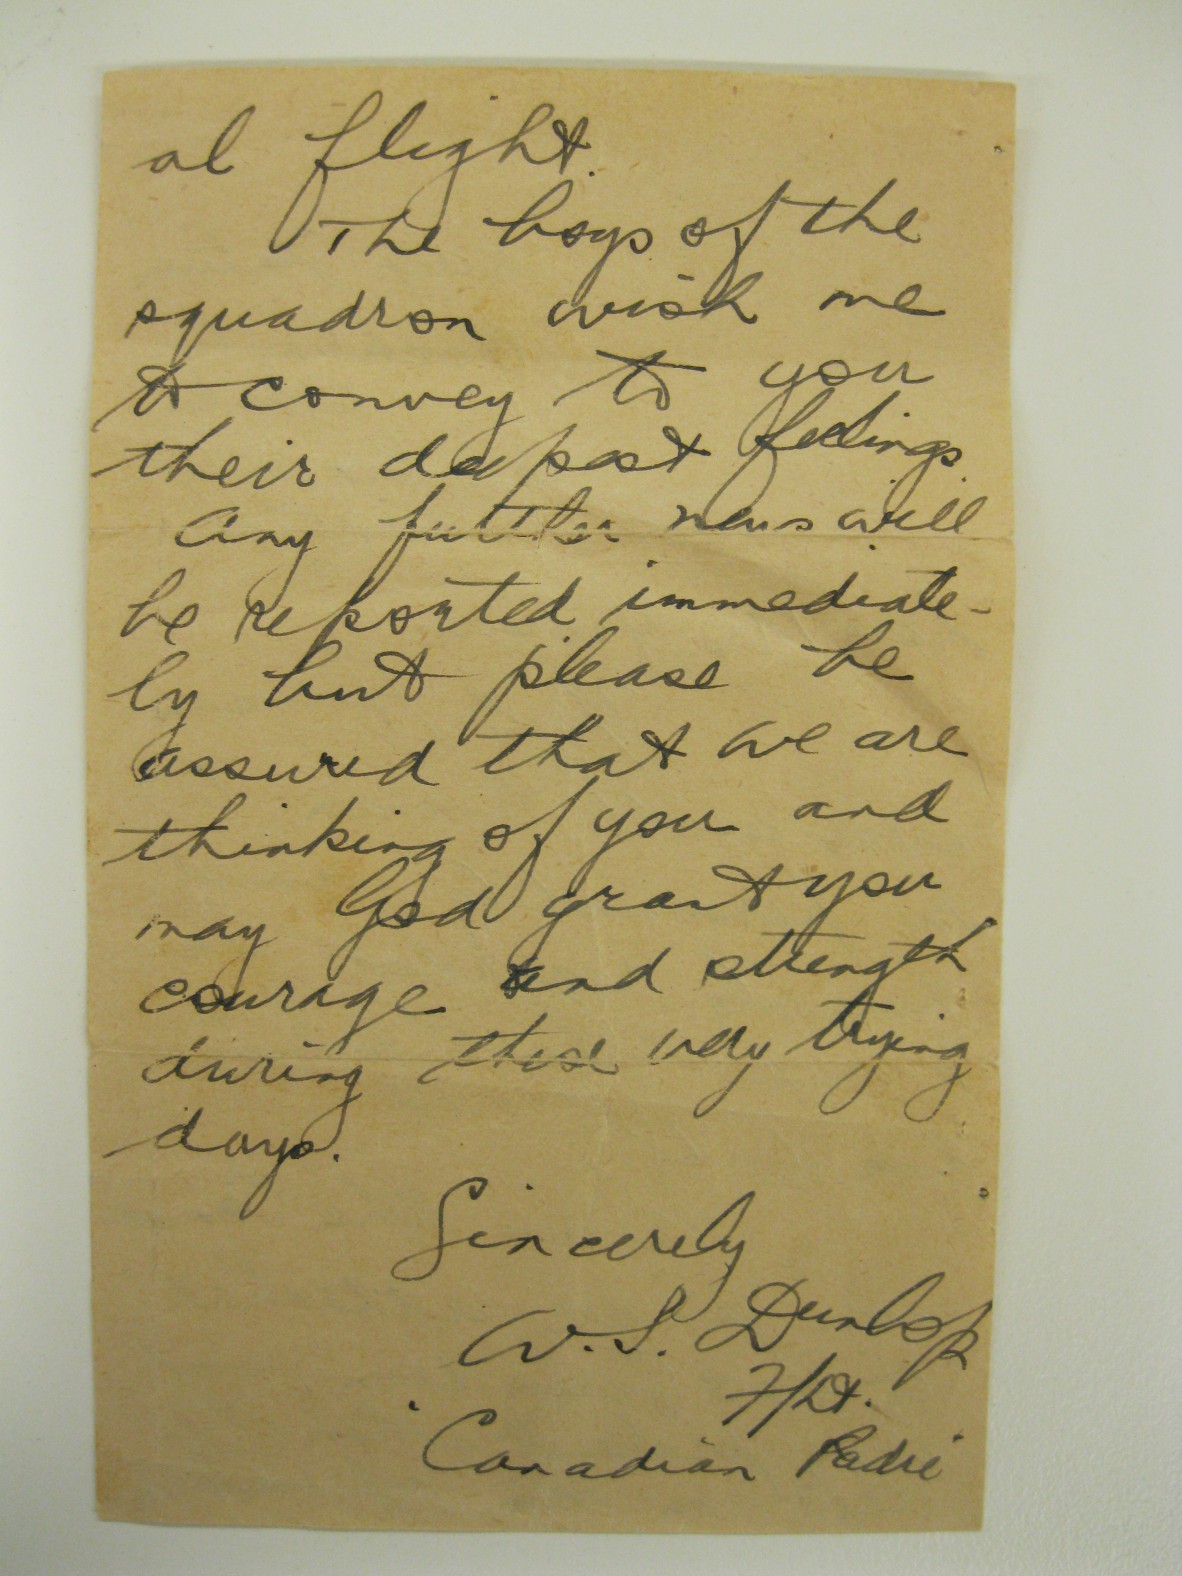 al flight.
The boys of the
squadron wish me
to convey to you
their deepest feelings.
Any further news will
be reported immediate-
ly but please be
assured that we are
thinking of you and
may God grant you
courage and strength
during these very trying
days.
Sincerely
W.S. Dunlop
F/Lt.
Canadian Padre